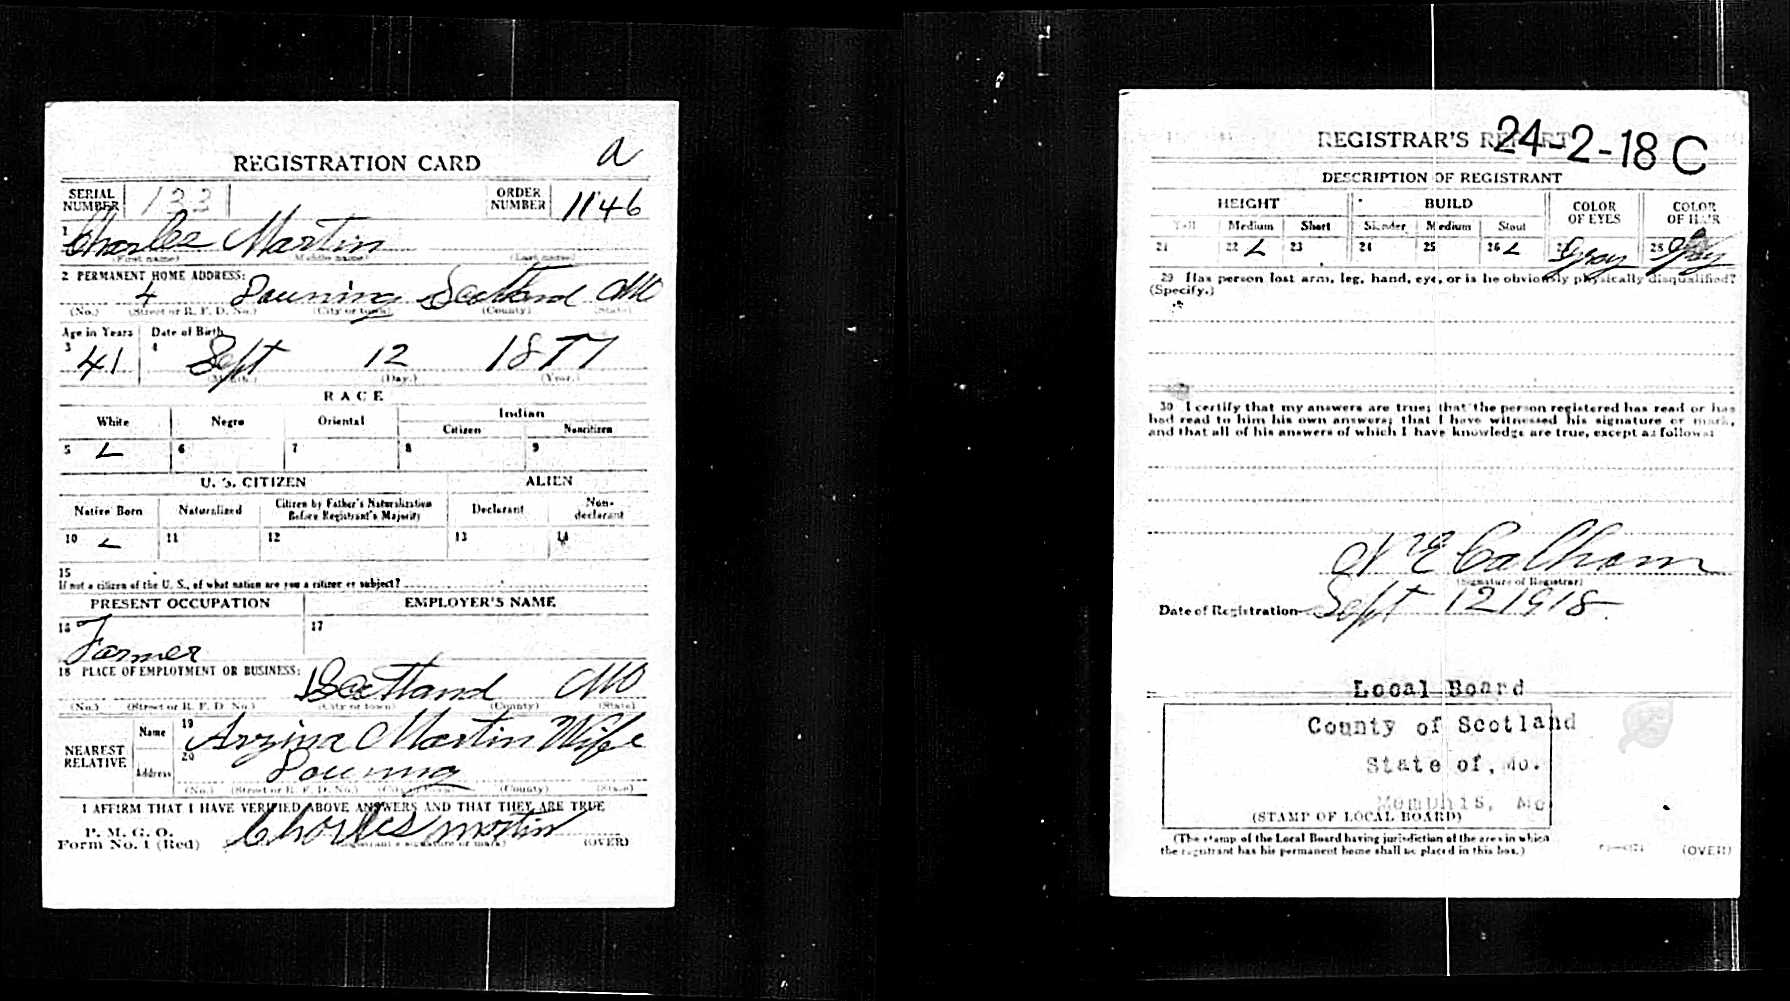 REGISTRATION CARD
a
SERIAL NUMBER 133
ORDER NUMBER 1146
1 Charles Martin
(First name) (Middle name) (Last name)
2 PERMANENT HOME ADDRESS:
4 Downing Scotland MO
(No.) (Street or R. F. D. No.) (City or town) (County) (State)
Age in Years Date of Birth
3 41 4 Sept 12 1877
(Month.) (Day.) (Year.)
RACE
White Negro Oriental Indian
Citizen Noncitizen
5 6 7 8 9
U. S. CITIZEN ALIEN
Native Born Naturalized Citizen by Father's Naturalization Before Registrant's Majority Declarant Non-declarant
10 11 12 13 14
15
If not a citizen of the U. S., of what nation are you a citizen or subject?
PRESENT OCCUPATION EMPLOYER'S NAME
16 Farmer 17
18 PLACE OF EMPLOYMENT OR BUSINESS:
Scotland MO
(No.) (Street or R. F. D. No.) (City or town) (County) (State)
NEAREST RELATIVE
Name 19 Arzina Martin Wife
Address 20 Downing
(No.) (Street or R. F. D. No.) (City or town) (County) (State)
I AFFIRM THAT I HAVE VERIFIED ABOVE ANSWERS AND THAT THEY ARE TRUE
P. M. G. O.
Form No. 1 (Red) Charles Martin
(Registrant's signature or mark) (OVER)
REGISTRAR'S REPORT
24-2-18 C
DESCRIPTION OF REGISTRANT
HEIGHT BUILD COLOR OF EYES COLOR OF HAIR
Tall Medium Short Slender Medium Stout
21 22 23 24 25 26 27 Gray 28 Gray
29 Has person lost arm, leg, hand, eye, or is he obviously physically disqualified?
(Specify.)
30 I certify that my answers are true; that the person registered has read or has
had read to him his own answers; that I have witnessed his signature or mark,
and that all of his answers of which I have knowledge are true, except as follows:
Calhoun
(Signature of Registrar)
Date of Registration Sept 12 1918
Local Board
County of Scotland
State of, Mo.
Memphis, Mo
(STAMP OF LOCAL BOARD)
(The stamp of the Local Board having jurisdiction of the area in which
the registrant has his permanent home shall be placed in this box.)
(OVER)